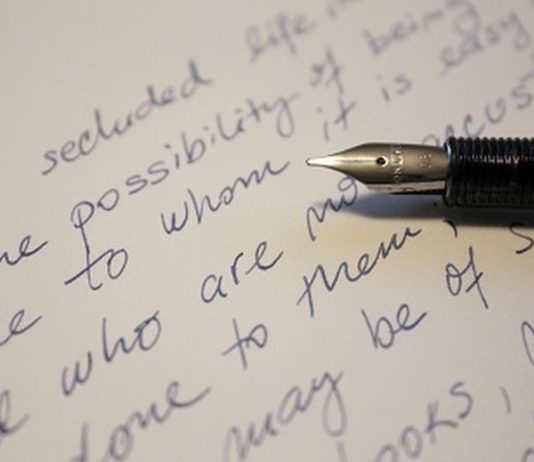 secluded life in
possibility of being
to whom it is easy
who are not accus
done to them,
may be of s
ooks,